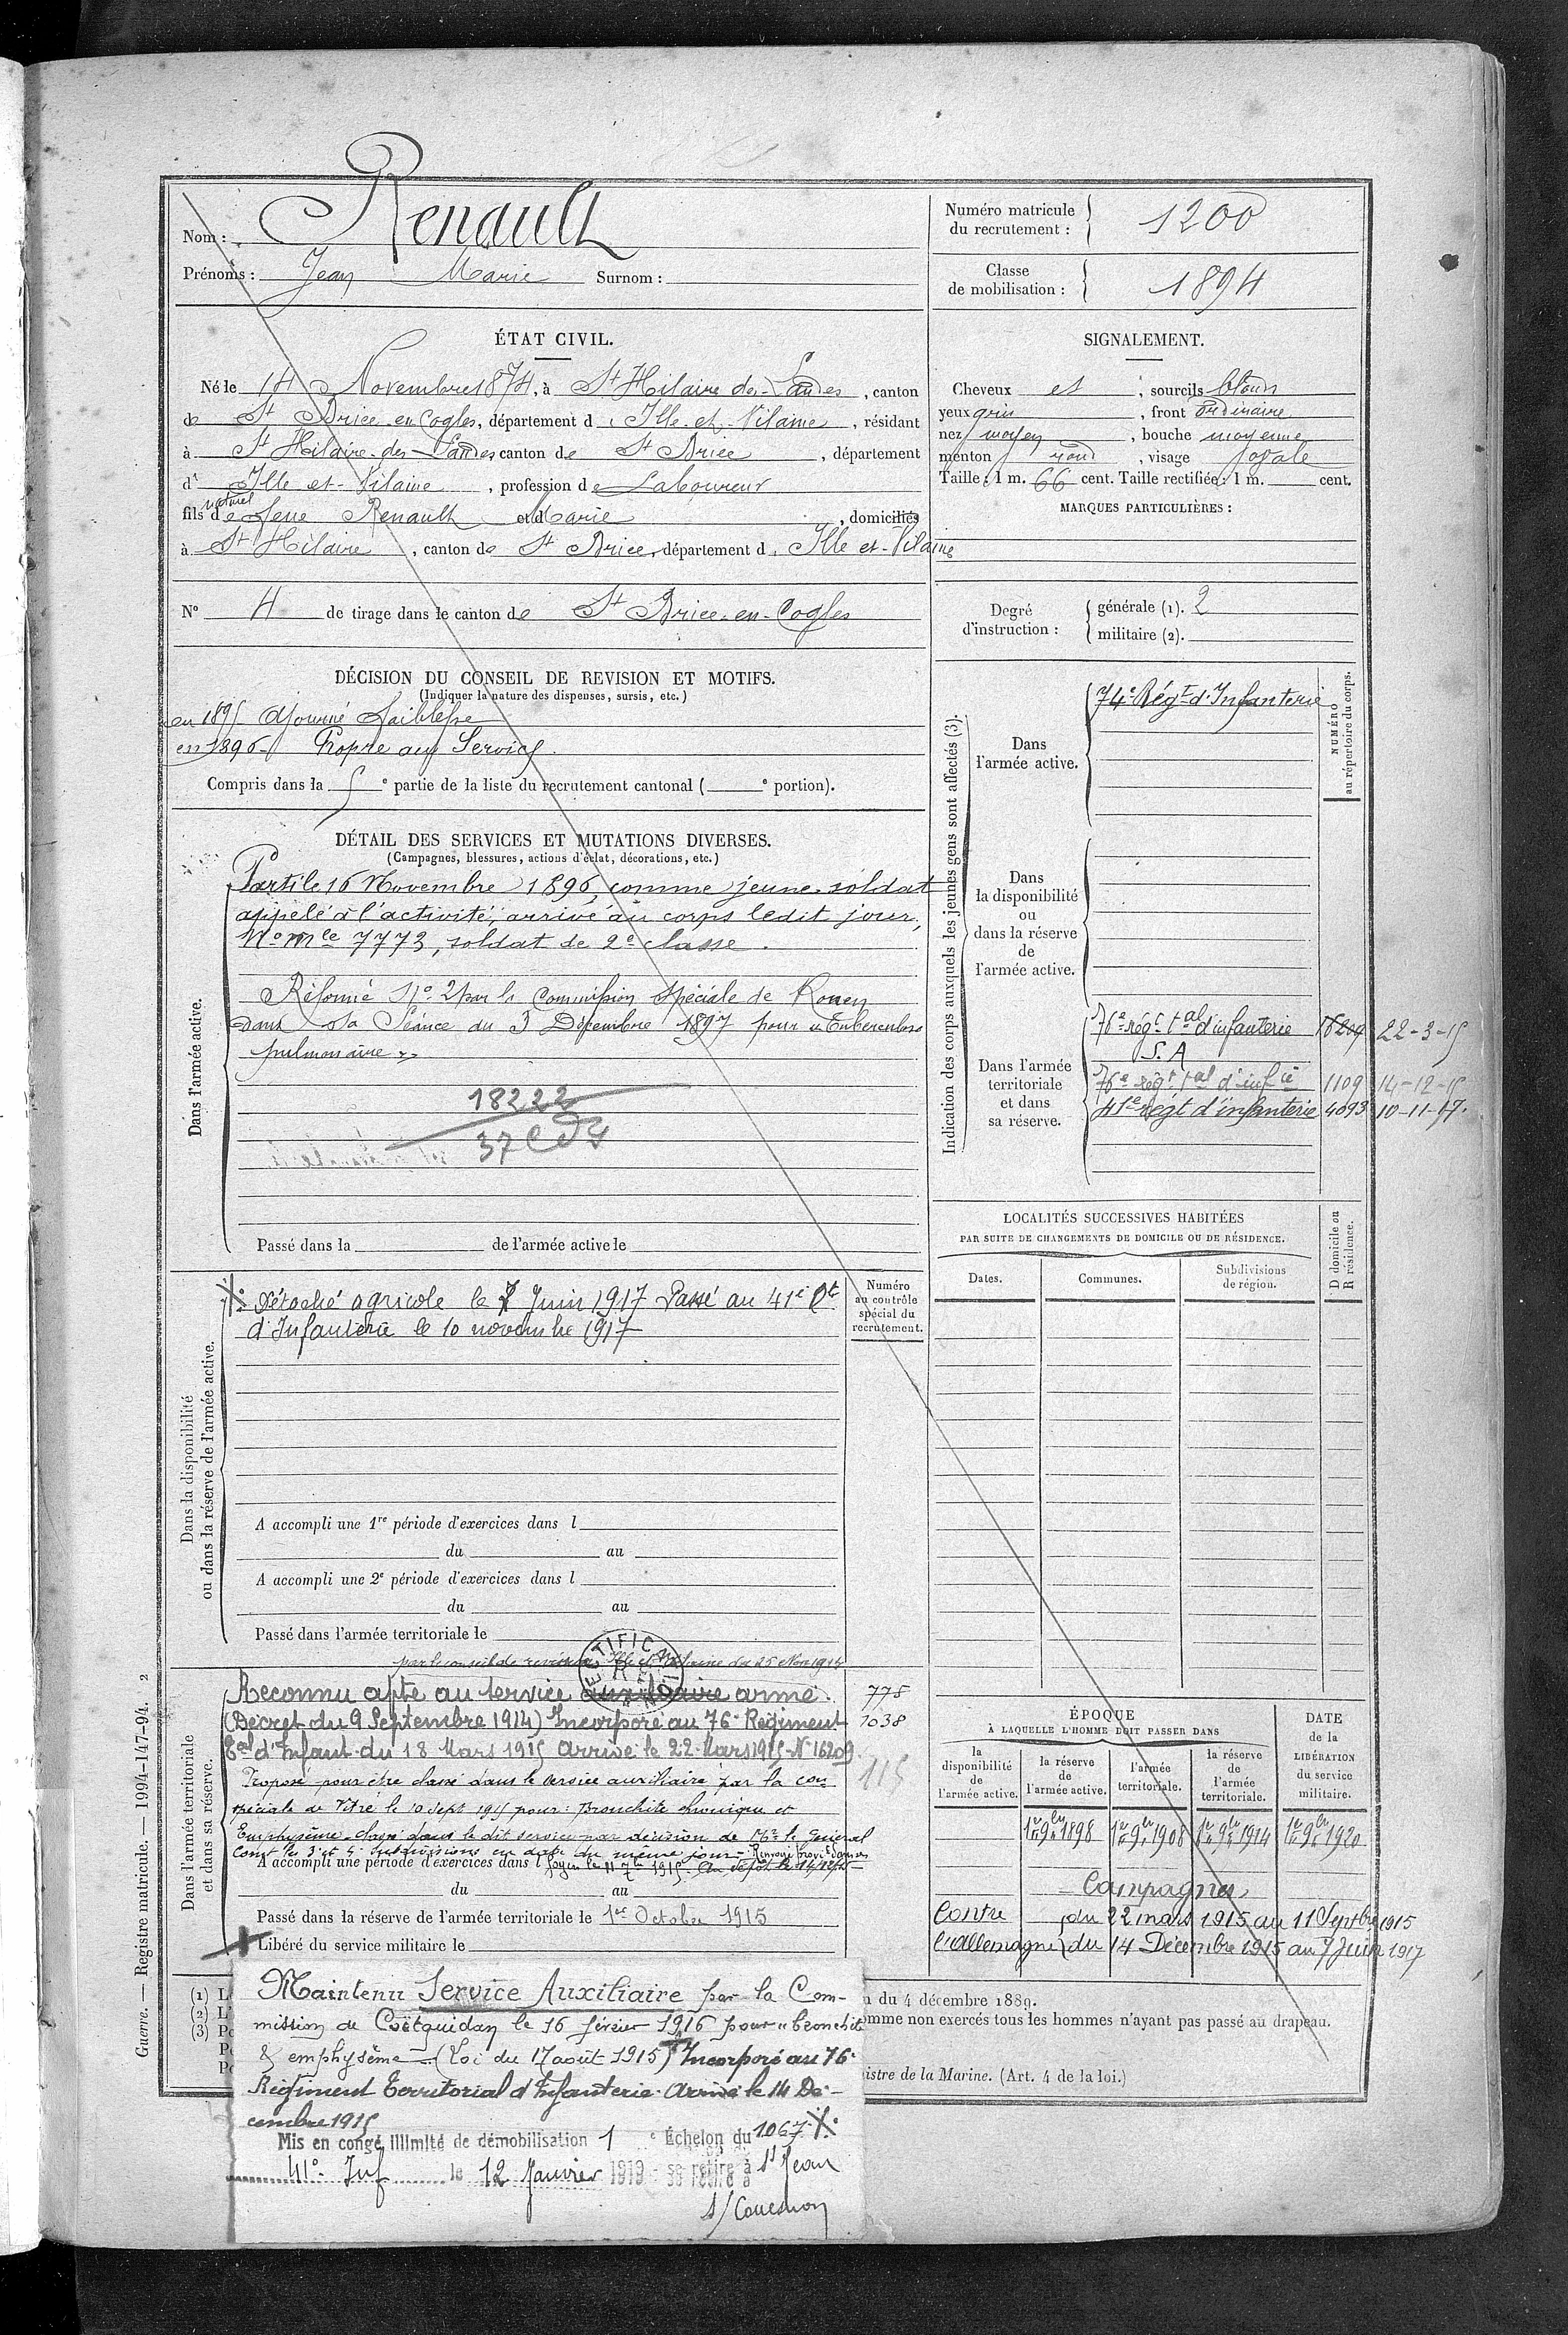 Nom : Renault
Prénoms : Jean Marie Surnom :
Numéro matricule du recrutement : 1200
Classe de mobilisation : 1894
ÉTAT CIVIL.
Né le 14 Novembre 1874, à St Hilaire des Landes, canton
de St Brice-en-Cogles, département d'Ille-et-Vilaine, résidant
à St Hilaire-des-Landes canton de St Brice, département
d'Ille-et-Vilaine, profession de Laboureur
naturel
fils de Renault et d Marie, domiciliés
à St Hilaire, canton de St Brice, département d'Ille et-Vilaine
N° 4 de tirage dans le canton de St Brice-en-Cogles
SIGNALEMENT.
Cheveux et, sourcils blonds
yeux gris, front ordinaire
nez moyen, bouche moyenne
menton rond, visage ovale
Taille : 1 m. 66 cent. Taille rectifiée : 1 m. cent.
MARQUES PARTICULIÈRES :
Degré d'instruction : générale (1). 2
militaire (2).
DÉCISION DU CONSEIL DE REVISION ET MOTIFS.
(Indiquer la nature des dispenses, sursis, etc.)
en 1895 Ajourné Faiblesse
en 1896 - Propre au Service.
Compris dans la 5e partie de la liste du recrutement cantonal ( e portion).
DÉTAIL DES SERVICES ET MUTATIONS DIVERSES.
(Campagnes, blessures, actions d'éclat, décorations, etc.)
Dans l'armée active.
Parti le 16 Novembre 1896, comme jeune soldat
appelé à l'activité, arrivé au corps ledit jour,
No mle 7773, soldat de 2e classe.
Réformé No 2 par la Commission Spéciale de Rouen
dans sa Séance du 3 Décembre 1897 pour "Tuberculose
pulmonaire"
18222
37
Passé dans la de l'armée active le
Indication des corps auxquels les jeunes gens sont affectés (3).
NUMÉRO au répertoire du corps.
Dans l'armée active.
74e Régt d'Infanterie
Dans la disponibilité ou dans la réserve de l'armée active.
Dans l'armée territoriale et dans sa réserve.
76e régt tal d'infanterie 16209 22-3-15
S.A
76e régt tal d'infie 1109 14-12-15
41e régt d'infanterie 4093 10-11-17.
LOCALITÉS SUCCESSIVES HABITÉES
PAR SUITE DE CHANGEMENTS DE DOMICILE OU DE RÉSIDENCE.
D domicile ou R résidence.
Dates. Communes. Subdivisions de région.
Dans la disponibilité ou dans la réserve de l'armée active.
Numéro au contrôle spécial du recrutement.
Détaché agricole le 7 Juin 1917 Passé au 41e Rt
d'Infanterie le 10 novembre 1917
A accompli une 1re période d'exercices dans l
du au
A accompli une 2e période d'exercices dans l
du au
Passé dans l'armée territoriale le
Dans l'armée territoriale et dans sa réserve.
RECTIFICATION
par le conseil de revision Ille et Vilaine du 25 Nov 1914
Reconnu apte au service auxiliaire armé. 778
(Décret du 9 Septembre 1914) Incorporé au 76e Régiment 1038
Tal d'Infant. du 18 Mars 1915 Arrivé le 22 Mars 1915 - N° 16209
115
Proposé pour être classé dans le service auxiliaire par la con
spéciale de Vitré le 10 sept 1915 pour : Bronchite chronique et
Emphysème - classé dans le dit service par décision de Mr le Général
Comt les 3e et 4e subdivisions en date du même jour - Renvoyé provt dans ses
A accompli une période d'exercices dans l
foyers le 11 7bre 1915. Au dépôt le 14/12/15
du au
Passé dans la réserve de l'armée territoriale le 1er Octobre 1915
Libéré du service militaire le
ÉPOQUE
À LAQUELLE L'HOMME DOIT PASSER DANS
la disponibilité de l'armée active.
la réserve de l'armée active.
l'armée territoriale.
la réserve de l'armée territoriale.
DATE de la LIBÉRATION du service militaire.
1er 9bre 1898 1er 9bre 1908 1er 9bre 1914 1er 9bre 1920
Campagnes
Contre du 22 mars 1915 au 11 Septbre 1915
l'Allemagne du 14 Décembre 1915 au 7 Juin 1917
Maintenu Service Auxiliaire par la Com-
mission de Coëtquidan le 16 février 1916 pour "bronchite
& emphysème" (Loi du 17 août 1915) Incorporé au 76e
Régiment Territorial d'Infanterie. Arrivé le 14 Dé-
cembre 1915
Mis en congé illimité de démobilisation 1e Échelon du 1067
41e Inf le 12 Janvier 1919 se retire à St Jean
s/ Couesnon
(1) L
(2) L'
(3) Po
n du 4 décembre 1889.
omme non exercés tous les hommes n'ayant pas passé au drapeau.
istre de la Marine. (Art. 4 de la loi.)
Guerre. — Registre matricule. — 1994-147-94. 2